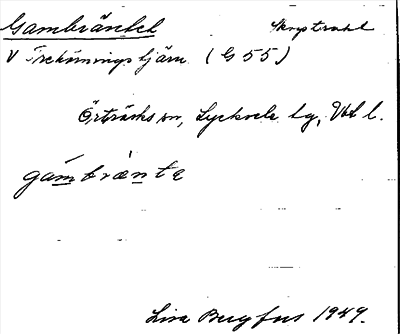 Gambräntet Skogstrakt
V Trekäningstjärn (G 55)
Örträsks sn, Lycksele lg, Vbl l.
gambränte
Lisa Bergfus 1949.